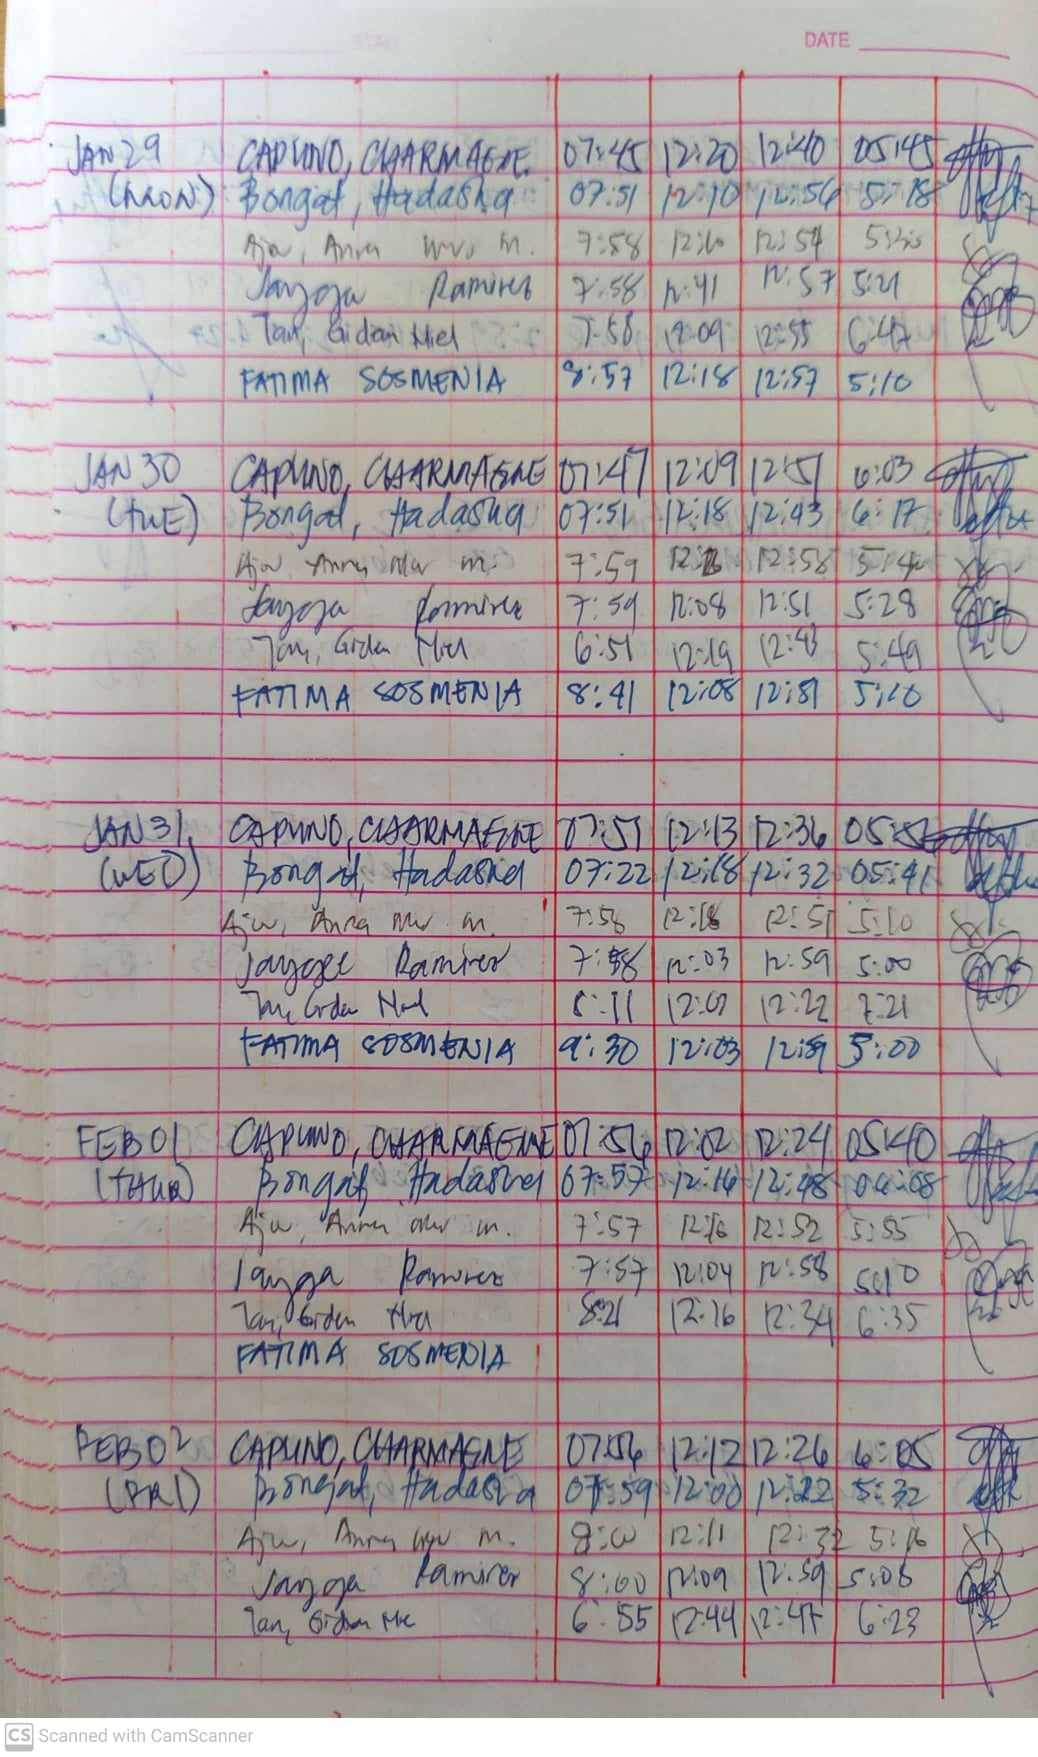 DATE
JAN 29 CAPUNO, CHARMAGNE 07:45 12:20 12:40 05:45
(MON) Bongat, Hadasha 07:51 12:10 12:56 5:18
Aju, Anna M. 7:58 12:10 12:54
Jayoga Ramirez 7:58 12:41 12:57 5:21
Tan, Gidan Niel 7:58 12:09 12:55 6:47
FATIMA SOSMENIA 8:57 12:18 12:57 5:10
JAN 30 CAPUNO, CHARMAGNE 07:47 12:09 12:51 6:03
(TUE) Bongat, Hadasha 07:51 12:18 12:43 6:17
Aju Anna M. 7:59 12:58 5:40
Jayoga Ramirez 7:59 12:08 12:51 5:28
Tan, Gidan Niel 6:51 12:19 12:43 5:49
FATIMA SOSMENIA 8:41 12:08 12:51 5:10
JAN 31, CAPUNO, CHARMAGNE 07:51 12:13 12:36
(WED) Bongat, Hadasha 07:22 12:18 12:32 05:41
Aju, Anna M. 7:58 12:18 12:51 5:10
Jayogee Ramirez 7:58 12:03 12:59 5:00
Tan, Gidan Niel 8:11 12:07 12:22 7:21
FATIMA SOSMENIA 9:30 12:03 12:59 5:00
FEB 01 CAPUNO, CHARMAGNE 07:56 12:02 12:24 05:40
(THUR) Bongat, Hadasha 07:57 12:16 12:48 06:08
Aju, Anna M. 7:57 12:16 12:52 5:55
Jayoga Ramirez 7:57 12:04 12:58 5:10
Tan, Gidan Niel 8:21 12:16 12:34 6:35
FATIMA SOSMENIA
FEB 02 CAPUNO, CHARMAGNE 07:56 12:12 12:26 6:05
(FRI) Bongat, Hadasha 07:59 12:00 12:22 5:32
Aju, Anna M. 8:00 12:11 12:32 5:16
Jayoga Ramirez 8:00 12:09 12:59 5:06
Tan, Gidan 6:55 12:44 12:47 6:23
CS Scanned with CamScanner